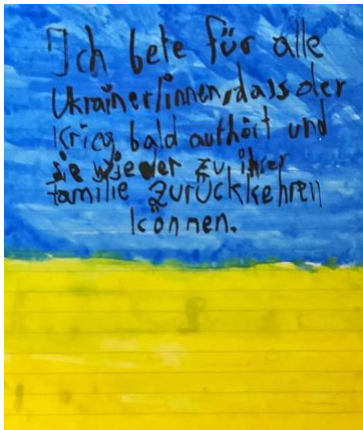 Ich bete für alle
Ukrainer/innen, dass der
Krieg bald aufhört und
sie wieder zu ihrer
familie zurückkehren
können.